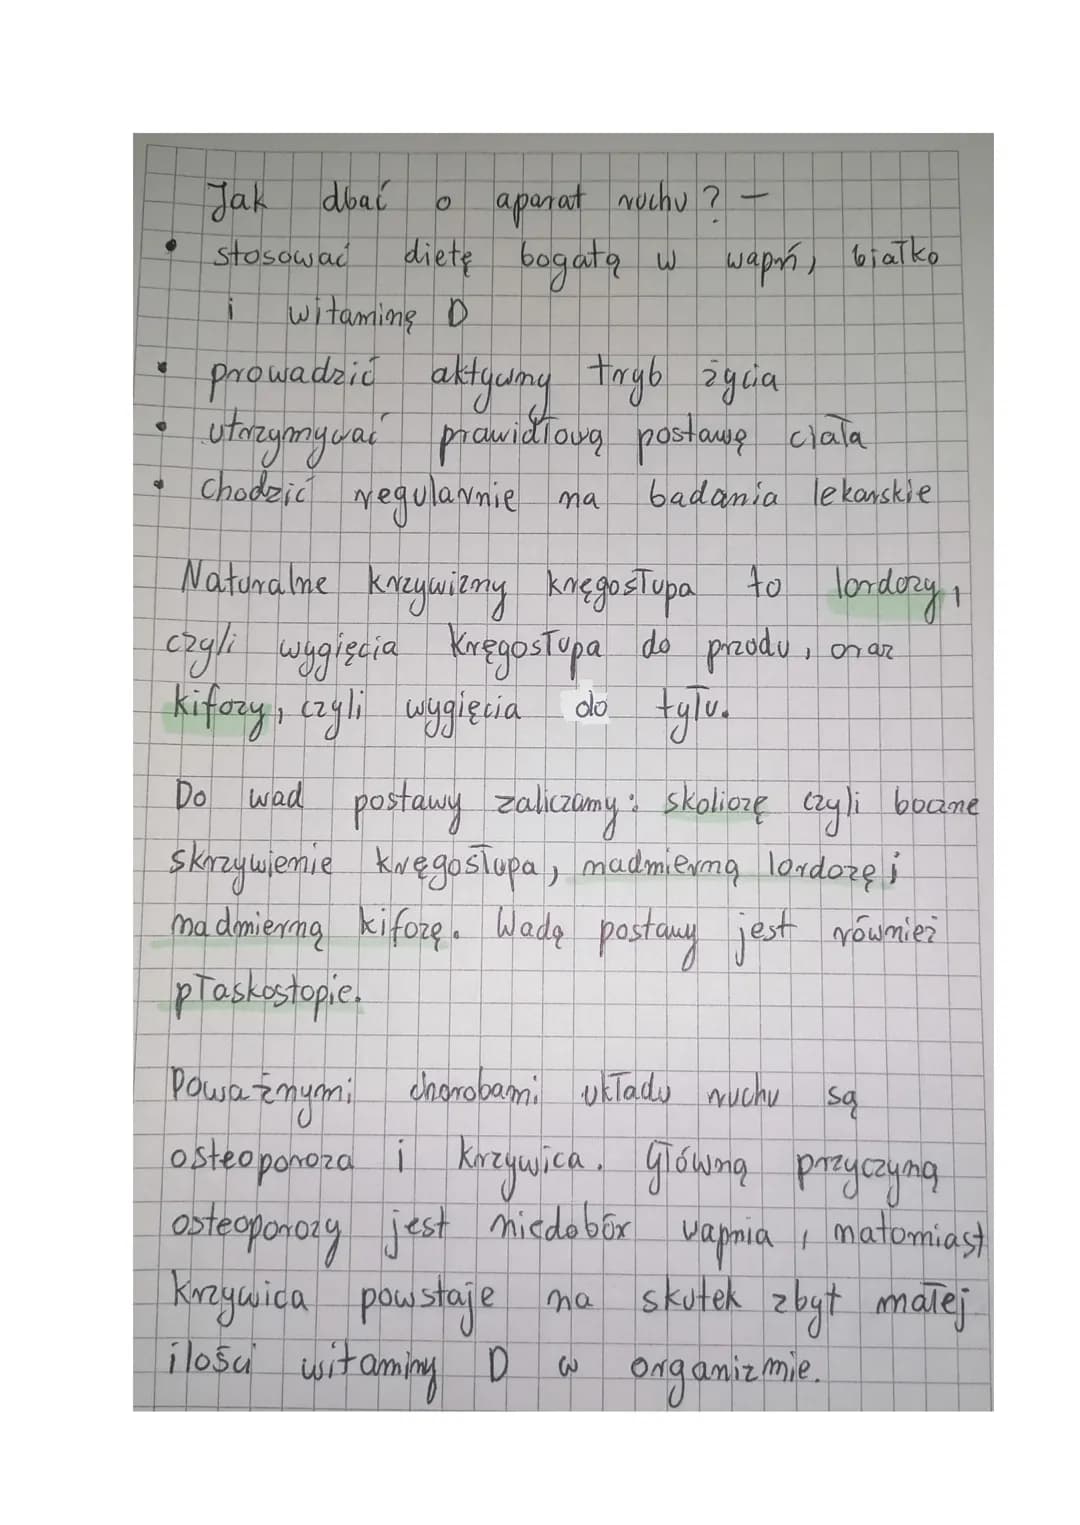 Jak dbać o aparat ruchu? –
• stosować dietę bogatą w wapń, białko
i witaminę D
• prowadzić aktywny tryb życia
• utrzymywać prawidłową postawę ciała
• chodzić regularnie na badania lekarskie
Naturalne krzywizny kręgosłupa to lordozy,
czyli wygięcia kręgosłupa do przodu, oraz
kifozy, czyli wygięcia do tyłu.
Do wad postawy zaliczamy: skoliozę czyli boczne
skrzywienie kręgosłupa, nadmierną lordozę i
nadmierną kifozę. Wadą postawy jest również
płaskostopie.
Poważnymi chorobami układu ruchu są
osteoporoza i krzywica. Główną przyczyną
osteoporozy jest niedobór wapnia, natomiast
krzywica powstaje na skutek zbyt małej
ilości witaminy D w organizmie.